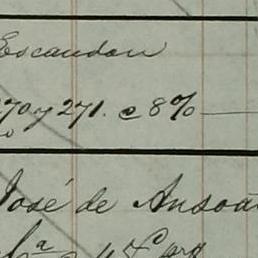 Escandon
270 y 271. c 8%
José de Ansoa